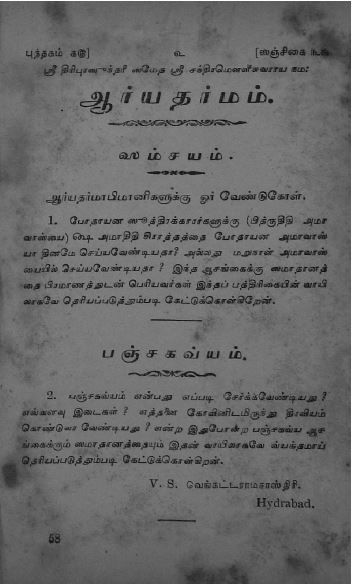 புத்தகம்
உ
ஸ்ரீ திரிபுரஸுந்தரீ ஸமேத ஸ்ரீ சந்திரமௌளீசுவராய நம:
ஆர்யதர்மம்.
ஸம்சயம்.
ஆர்யதர்மாபிமானிகளுக்கு ஓர் வேண்டுகோள்.
1. போதாயன ஸூத்திரக்காரர்களுக்கு (பித்ருதிதி அமா
வாஸ்யை) அமாதிதி சிராத்தத்தை போதாயன அமாவாஸ்
யா தினமே செய்யவேண்டியதா? அல்லது மறுநாள் அமாவாஸ்
யையில் செய்யவேண்டியதா? இந்த ஆசங்கைக்கு ஸமாதானத்
தை பிரமாணத்துடன் பெரியவர்கள் இந்தப் பத்திரிகையின் வாயி
லாகவே தெரியப்படுத்தும்படி கேட்டுக்கொள்கிறேன்.
பஞ்சகவ்யம்.
2. பஞ்சகவ்யம் என்பது எப்படி சேர்க்கவேண்டியது?
எவ்வளவு இடைகள்? எத்தனை கோவினிடமிருந்து திரவியம்
கொண்டுவர வேண்டியது? என்ற இதுபோன்ற பஞ்சகவ்ய ஆச
ங்கைக்கும் ஸமாதானத்தையும் இதன் வாயிலாகவே வ்யக்தமாய்
தெரியப்படுத்தும்படி கேட்டுக்கொள்கிறேன்.
V. S. வெங்கட்டராமசாஸ்திரி.
Hydrabad.
58